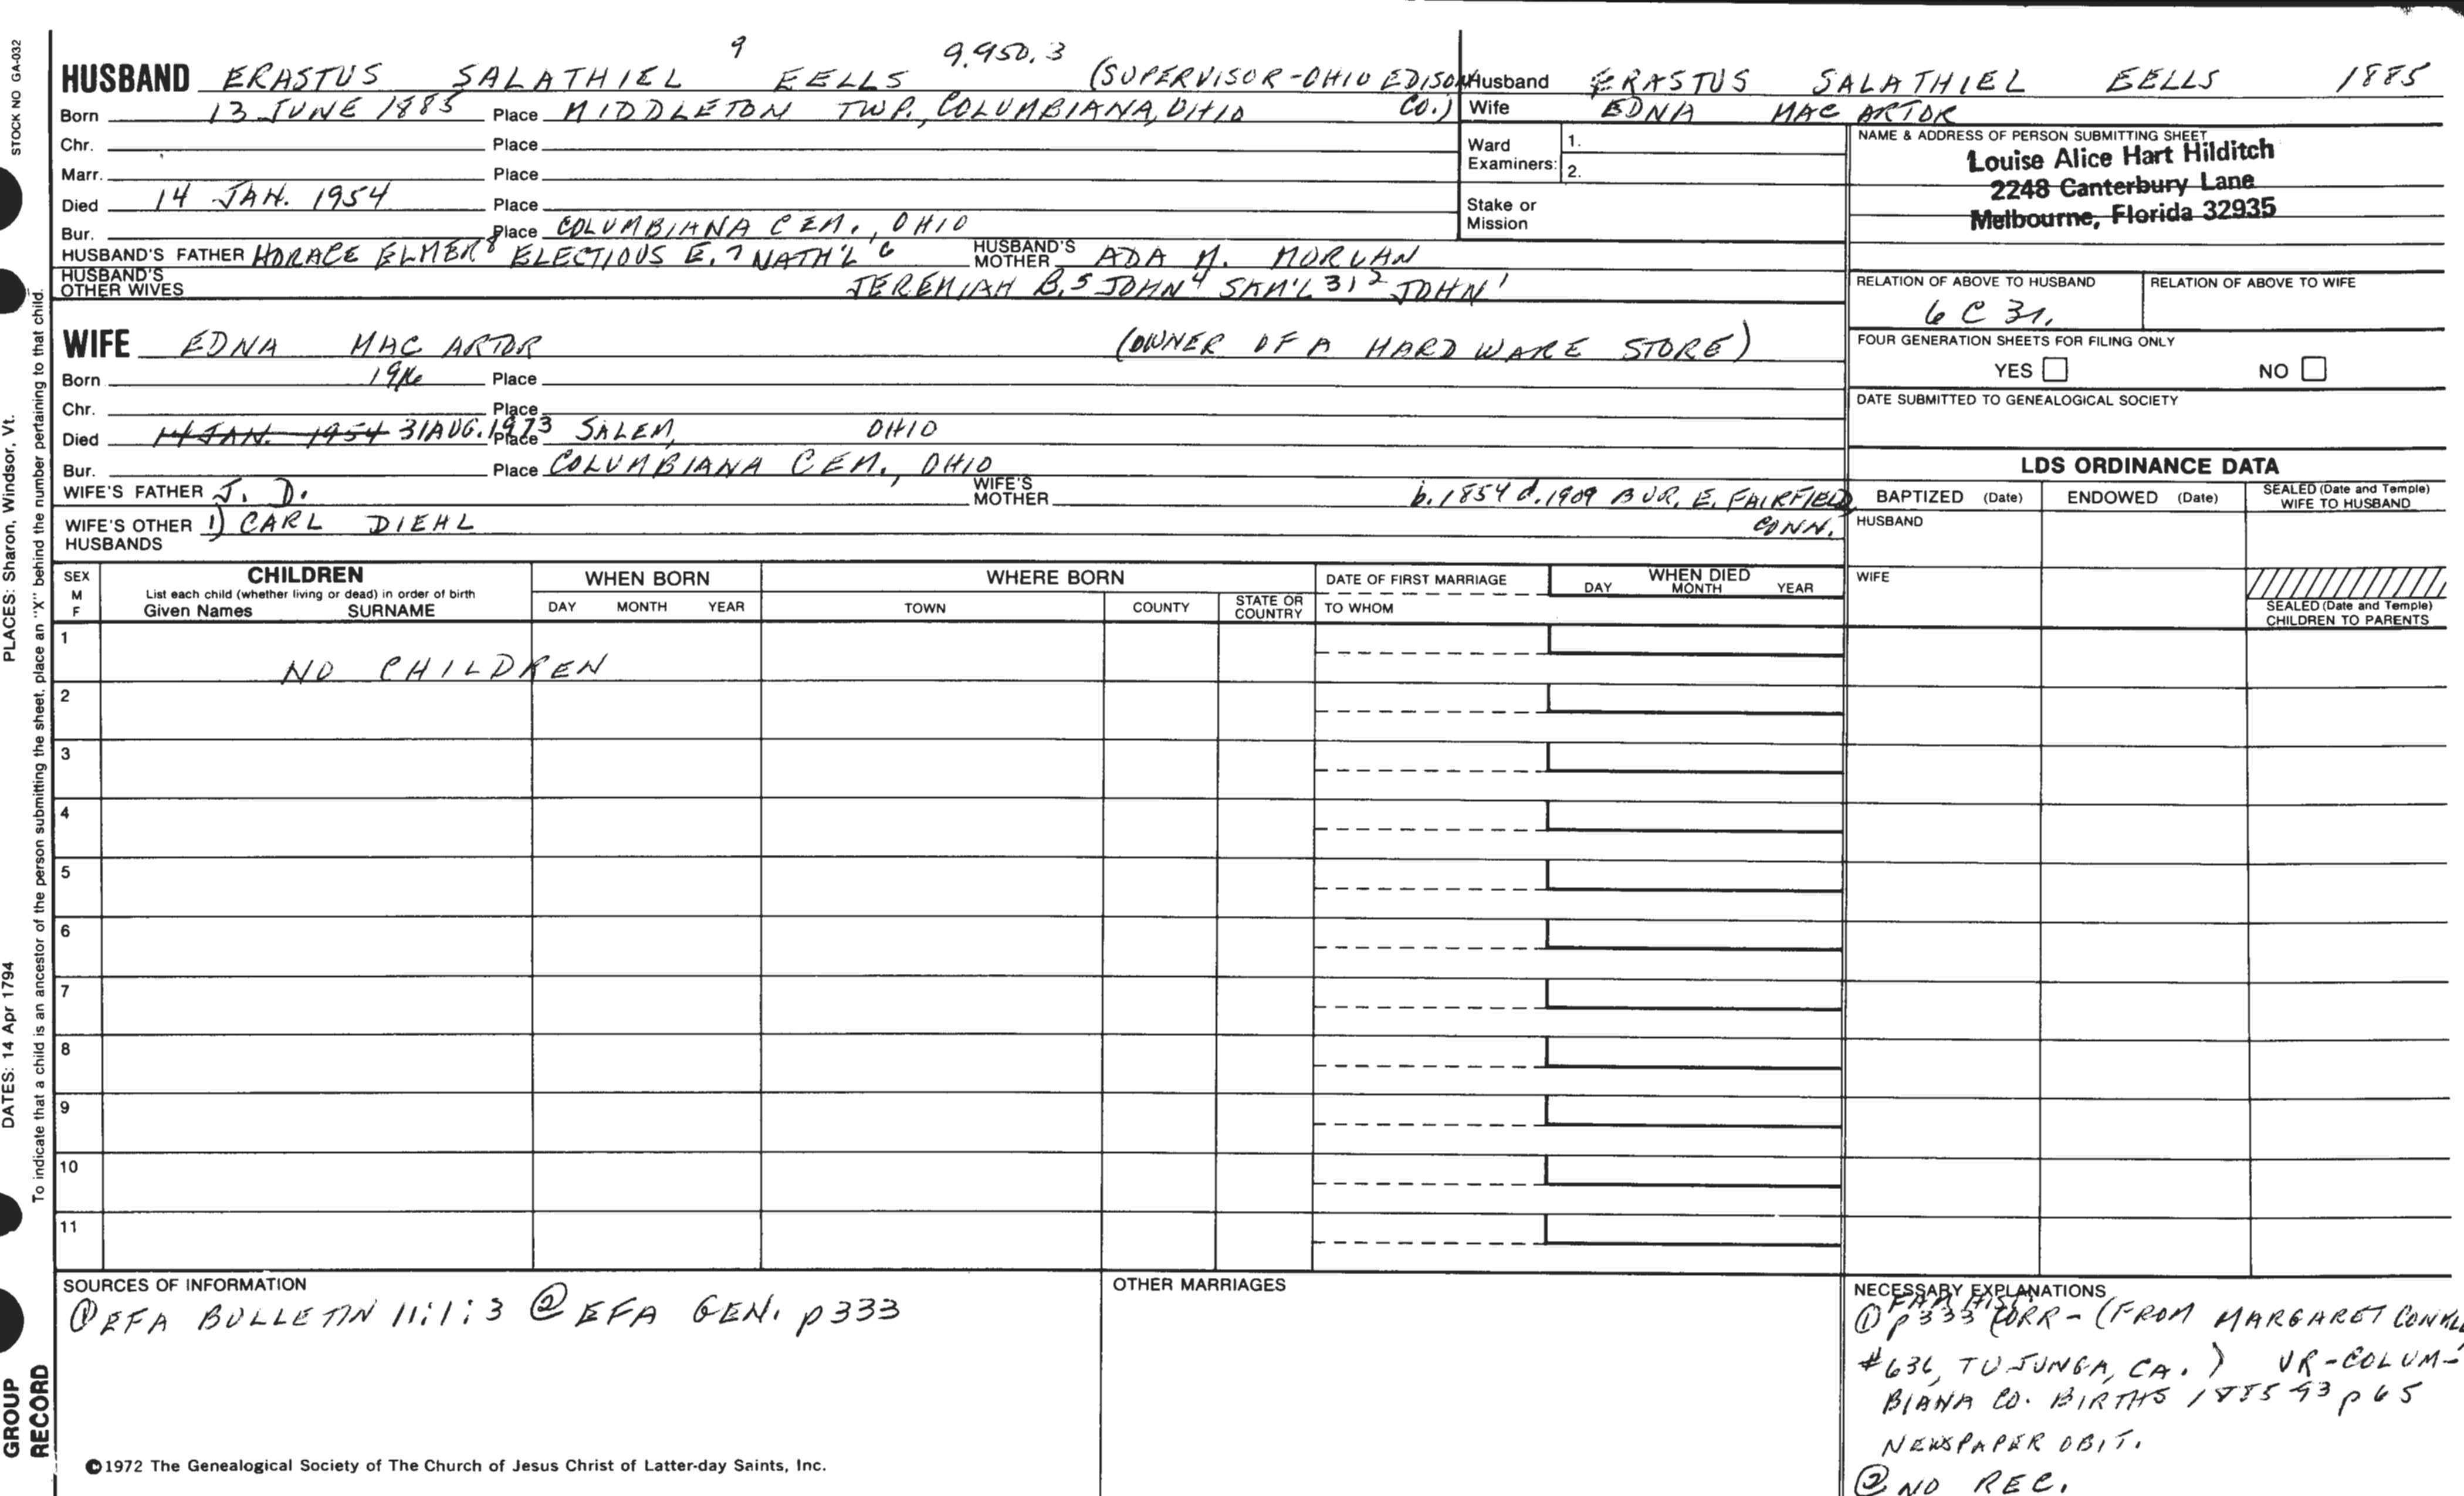 STOCK NO GA-032
PLACES: Sharon, Windsor, Vt.
DATES: 14 Apr 1794
To indicate that a child is an ancestor of the person submitting the sheet, place an "X" behind the number pertaining to that child.
GROUP
RECORD
9 9.950.3
HUSBAND ERASTUS SALATHIEL EELLS (SUPERVISOR-OHIO EDISON
CO.)
Born 13 JUNE 1885 Place MIDDLETON TWP., COLUMBIANA, OHIO
Chr. Place
Marr. Place
Died 14 JAN. 1954 Place
Bur. Place COLUMBIANA CEM., OHIO
HUSBAND'S FATHER HORACE ELMER 8 ELECTIOUS E. 7 NATH'L 6 HUSBAND'S MOTHER ADA M.
HUSBAND'S OTHER WIVES JEREMIAH B. 5 JOHN 4 SAM'L 3, 2 JOHN 1
WIFE EDNA MAC ARTOR (OWNER OF A HARDWARE STORE)
Born Place
Chr. Place
Died 14 JAN. 1954 31 AUG. 1973 Place SALEM, OHIO
Bur. Place COLUMBIANA CEM., OHIO
WIFE'S FATHER J. D. WIFE'S MOTHER b. 1854 d. 1909 BUR. E. FAIRFIELD
CONN.
WIFE'S OTHER HUSBANDS 1) CARL DIEHL
Husband ERASTUS SALATHIEL EELLS 1885
Wife EDNA MAC ARTOR
Ward Examiners: 1.
2.
Stake or Mission
NAME & ADDRESS OF PERSON SUBMITTING SHEET
Louise Alice Hart Hilditch
2248 Canterbury Lane
Melbourne, Florida 32935
RELATION OF ABOVE TO HUSBAND RELATION OF ABOVE TO WIFE
6 C 3r.
FOUR GENERATION SHEETS FOR FILING ONLY
YES NO
DATE SUBMITTED TO GENEALOGICAL SOCIETY
LDS ORDINANCE DATA
BAPTIZED (Date) ENDOWED (Date) SEALED (Date and Temple) WIFE TO HUSBAND
HUSBAND
WIFE
SEALED (Date and Temple)
CHILDREN TO PARENTS
SEX M F CHILDREN WHEN BORN WHERE BORN DATE OF FIRST MARRIAGE WHEN DIED
List each child (whether living or dead) in order of birth
Given Names SURNAME DAY MONTH YEAR TOWN COUNTY STATE OR COUNTRY TO WHOM DAY MONTH YEAR
1 NO CHILDREN
2
3
4
5
6
7
8
9
10
11
SOURCES OF INFORMATION
① EFA BULLETIN 11:1:3 ② EFA GEN. p333
OTHER MARRIAGES
NECESSARY EXPLANATIONS
FAM HIST.
① p333 CORR - (FROM MARGARET
#636, TUJUNGA, CA.) VR-COLUM-
BIANA CO. BIRTHS 1885-93 p65
NEWSPAPER OBIT.
② NO REC.
©1972 The Genealogical Society of The Church of Jesus Christ of Latter-day Saints, Inc.